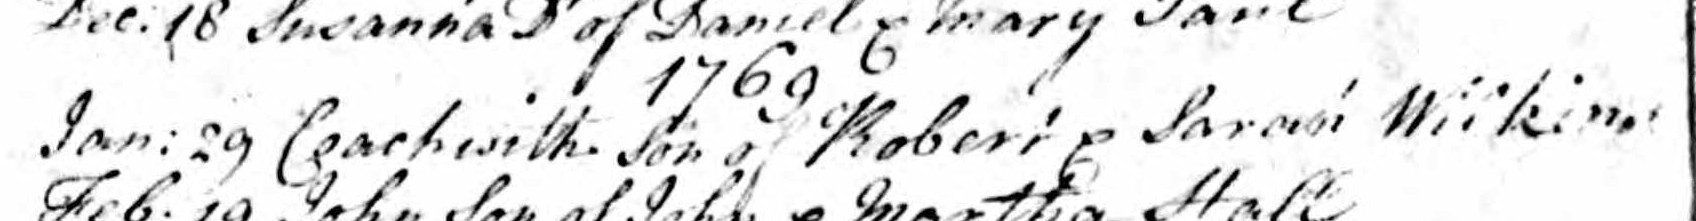 Dec: 18 Susanna Dr of Daniel & Mary
1769
Jan: 29 Ceachwith son of Robert & Sarah Wilkins
Feb. 19 John Son of John & Martha Hall